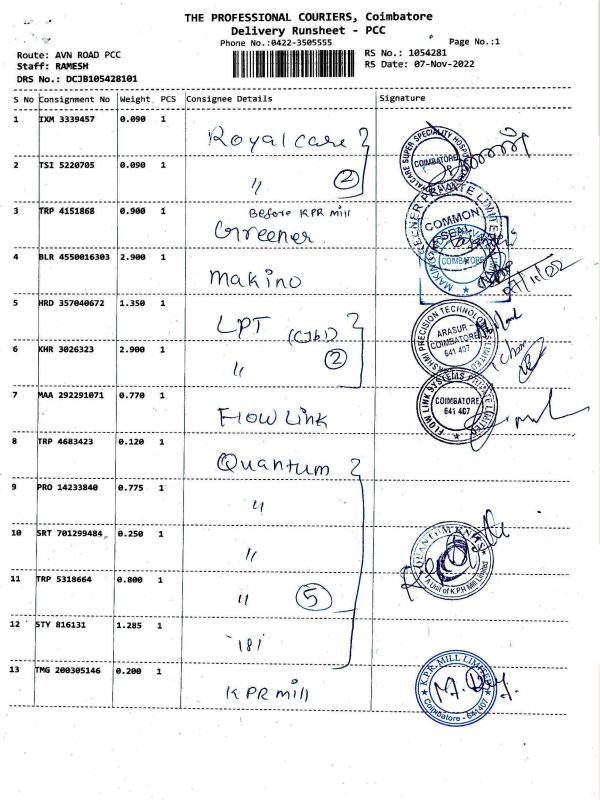 THE PROFESSIONAL COURIERS, Coimbatore
Delivery Runsheet - PCC
Phone No.:0422-3505555 Page No.:1
Route: AVN ROAD PCC RS No.: 1054281
Staff: RAMESH RS Date: 07-Nov-2022
DRS No.: DCJB105428101
S No Consignment No Weight PCS Consignee Details Signature
1 IXM 3339457 0.090 1 Royalcare
ROYALCARE SUPER SPECIALITY HOSPITAL COIMBATORE
2 TSI 5220705 0.090 1 " 2
3 TRP 4151868 0.900 1 Before KPR mill
Greener
GREENER PRIVATE LIMITED COMMON SEAL
4 BLR 4550016303 2.900 1 Makino
MAKINO COIMBATORE
07/11/22
5 HRD 357040672 1.350 1 LPT (CJb1)
PRECISION TECHNOLOGIES LIMITED ARASUR COIMBATORE 641 407
6 KHR 3026323 2.900 1 " 2
7 MAA 292291071 0.770 1 Flow Link
FLOW LINK SYSTEMS PRIVATE LIMITED COIMBATORE 641 407
8 TRP 4683423 0.120 1 Quantum
9 PRO 14233840 0.775 1 "
10 SRT 701299484 0.250 1 "
QUANTUM KNITS A Unit of K.P.R Mill Limited
11 TRP 5318664 0.800 1 " 5
12 STY 816131 1.285 1
13 TMG 200305146 0.200 1 KPR mill
K.P.R. MILL LIMITED Coimbatore - 641407